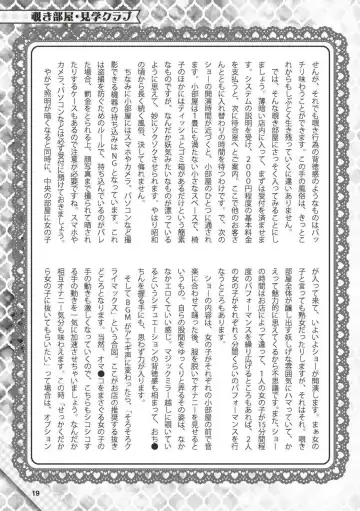 覗き部屋・見学クラブ
せんが、それでも覗き行為の背徳感のようなものはバッ
チリ味わうことができます。この手の風俗は、きっとこ
れからもしぶとく生き残っていくに違いありません。
では、そんな覗き部屋にさっそく入ってみることにし
ましょう。薄暗い店内に入って、まずは受付を済ませま
す。システムの説明を受け、2000円程度の基本料金
を支払うと、次に待合室へとご案内。ここで他のお客さ
んともに入れ替わりの時間を待つわけです。で、次の
ショーの開演時間が近づくと、小部屋のひとつに通され
ます。小部屋は1畳にも満たない小さなスペースで、椅
子のほかにはティッシュとゴミ箱があるだけという簡素
なものですが、なんだか妖気みたいなものが漂っている
ように思えて、妙にゾクゾクさせられます。やはり昭和
の頃から長く続く風俗、決して侮れません。
ちなみに小部屋にはスマホやカメラ、パソコンなど撮
影できる機器の持ち込みはNGとなっています。これ
は盗撮を防ぐためのルールで、持ち込んでいるのがバレ
た場合、罰金をとられる上、顔写真まで撮られて晒され
たりするケースもあるので注意が必要ですね。スマホや
カメラ、パソコンなどは必ず受付に預けておきましょう。
やがて照明が暗くなると同時に、中央の部屋に女の子
が入って来て、いよいよショーが開演します。まぁ女の
子と言っても熟女だったりしますが、それはそれ、覗き
部屋全体が醸し出す妖しげな雰囲気にハマっていて、か
えって魅力的に思えてくるから不思議です。また、ショー
の時間はお店によって違って、1人の女の子が15分間程
度のパフォーマンスを繰り広げるところもあれば、2人
の女の子がそれぞれ5分間くらいのパフォーマンスを行
なうところもあります。
ショーの内容は、女の子がそれぞれの小部屋の前で音
楽に合わせて踊った後、服を脱いでオナニーを見せると
いうもの。自分の股間をゆっくりと弄るその姿は、なか
なかエロっていいい感じ。マジックミラー越しに覗いてい
るというシチュエーションの背徳感も相まって、おち●
ちんを握る手にも、思わず力が入ります。
そしてBGMがアニメ声に変わったら、「そろそろク
ライマックス」という合図。ここがお店の推奨する抜き
どころとなります。当然、オマ●コをまさぐる女の子の
手の動きも激しくなっていくので、こちらもシコシコす
る手の動きを一気に加速させちゃいましょう。なんだか
相互オナニー気分も味わえます。この時、「せっかくだか
ら女の子に抜いてもらいたい」って場合は、オプション
19